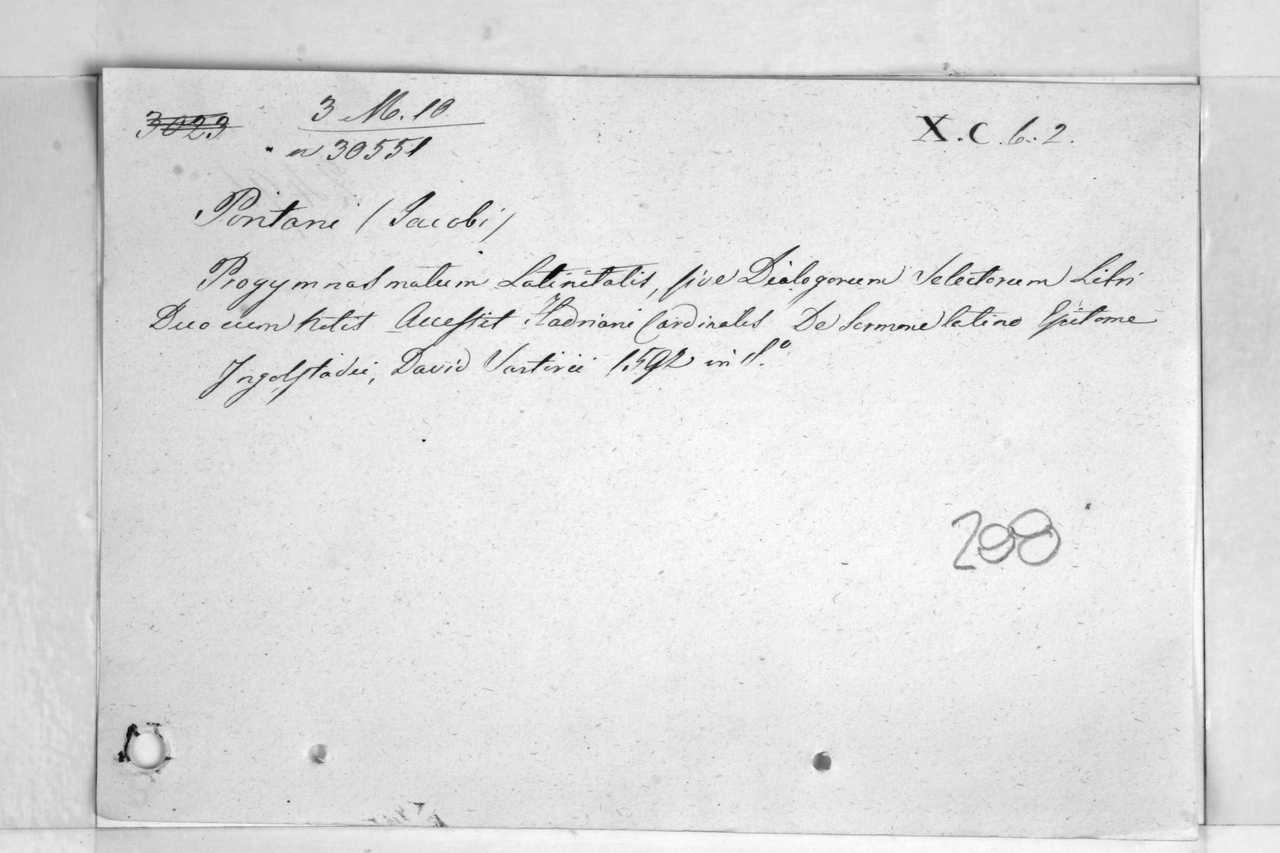 3023 3 M. 10 X. C. 6. 2.
n 30551
Pontani (Jacobi)
Progymnasmatum Latinitatis, sive Dialogorum Selectorum Libri
Duo cum Notis Accessit Hadriani Cardinalis De Sermone latino Epitome
Ingolstadii, David Sartirii 1592 in 8.º
200